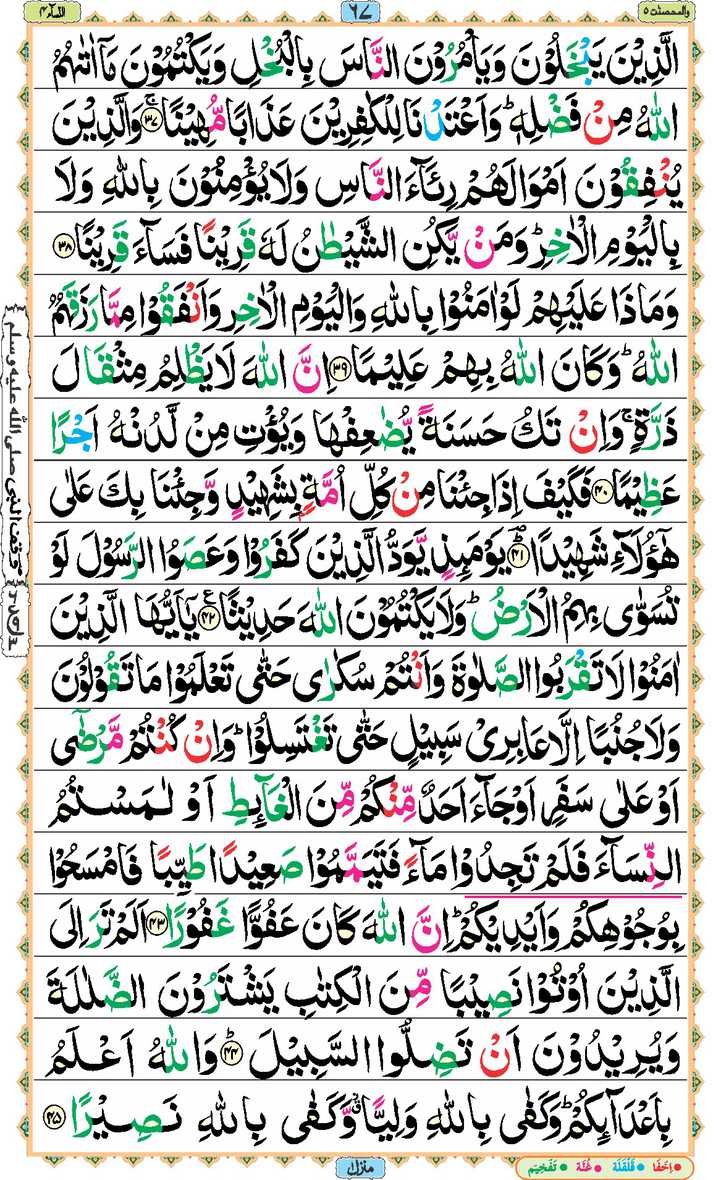 والمحصنت ۵
۶۷
النساء ۴
الَّذِیْنَ یَبْخَلُوْنَ وَیَاْمُرُوْنَ النَّاسَ بِالْبُخْلِ وَیَكْتُمُوْنَ مَاۤ اٰتٰىهُمُ
اللّٰهُ مِنْ فَضْلِهٖؕ وَاَعْتَدْنَا لِلْكٰفِرِیْنَ عَذَابًا مُّهِیْنًاۚ ۳۷ وَالَّذِیْنَ
یُنْفِقُوْنَ اَمْوَالَهُمْ رِئَآءَ النَّاسِ وَلَا یُؤْمِنُوْنَ بِاللّٰهِ وَلَا
بِالْیَوْمِ الْاٰخِرِؕ وَمَنْ یَّكُنِ الشَّیْطٰنُ لَهٗ قَرِیْنًا فَسَآءَ قَرِیْنًا ۳۸
وَمَاذَا عَلَیْهِمْ لَوْ اٰمَنُوْا بِاللّٰهِ وَالْیَوْمِ الْاٰخِرِ وَاَنْفَقُوْا مِمَّا رَزَقَهُمُ
اللّٰهُؕ وَكَانَ اللّٰهُ بِهِمْ عَلِیْمًا ۳۹ اِنَّ اللّٰهَ لَا یَظْلِمُ مِثْقَالَ
ذَرَّةٍۚ وَاِنْ تَكُ حَسَنَةً یُّضٰعِفْهَا وَیُؤْتِ مِنْ لَّدُنْهُ اَجْرًا
عَظِیْمًا ۴۰ فَكَیْفَ اِذَا جِئْنَا مِنْ كُلِّ اُمَّةٍۭ بِشَهِیْدٍ وَّجِئْنَا بِكَ عَلٰى
هٰۤؤُلَآءِ شَهِیْدًاؕ ۴۱ یَوْمَىِٕذٍ یَّوَدُّ الَّذِیْنَ كَفَرُوْا وَعَصَوُا الرَّسُوْلَ لَوْ
تُسَوّٰى بِهِمُ الْاَرْضُؕ وَلَا یَكْتُمُوْنَ اللّٰهَ حَدِیْثًا ۴۲ ع یٰۤاَیُّهَا الَّذِیْنَ
اٰمَنُوْا لَا تَقْرَبُوا الصَّلٰوةَ وَاَنْتُمْ سُكٰرٰى حَتّٰى تَعْلَمُوْا مَا تَقُوْلُوْنَ
وَلَا جُنُبًا اِلَّا عَابِرِیْ سَبِیْلٍ حَتّٰى تَغْتَسِلُوْاؕ وَاِنْ كُنْتُمْ مَّرْضٰۤى
اَوْ عَلٰى سَفَرٍ اَوْ جَآءَ اَحَدٌ مِّنْكُمْ مِّنَ الْغَآىِٕطِ اَوْ لٰمَسْتُمُ
النِّسَآءَ فَلَمْ تَجِدُوْا مَآءً فَتَیَمَّمُوْا صَعِیْدًا طَیِّبًا فَامْسَحُوْا
بِوُجُوْهِكُمْ وَاَیْدِیْكُمْؕ اِنَّ اللّٰهَ كَانَ عَفُوًّا غَفُوْرًا ۴۳ اَلَمْ تَرَ اِلَى
الَّذِیْنَ اُوْتُوْا نَصِیْبًا مِّنَ الْكِتٰبِ یَشْتَرُوْنَ الضَّلٰلَةَ
وَیُرِیْدُوْنَ اَنْ تَضِلُّوا السَّبِیْلَؕ ۴۴ وَاللّٰهُ اَعْلَمُ
بِاَعْدَآىِٕكُمْؕ وَكَفٰى بِاللّٰهِ وَلِیًّاۗۙ وَّكَفٰى بِاللّٰهِ نَصِیْرًا ۴۵
وقف النبی صلی اللہ علیہ وسلم
منزل
اِخْفَا • قَلْقَلَة • غُنَّة • تَفْخِيْم •